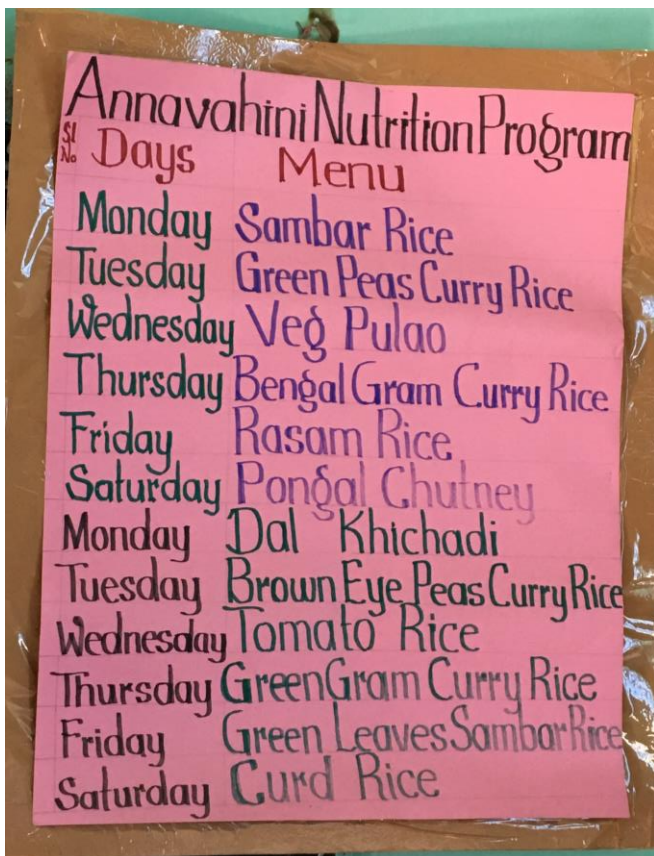 Annavahini Nutrition Program
Sl No Days Menu
Monday Sambar Rice
Tuesday Green Peas Curry Rice
Wednesday Veg Pulao
Thursday Bengal Gram Curry Rice
Friday Rasam Rice
Saturday Pongal Chutney
Monday Dal Khichadi
Tuesday Brown Eye Peas Curry Rice
Wednesday Tomato Rice
Thursday Green Gram Curry Rice
Friday Green Leaves Sambar Rice
Saturday Curd Rice